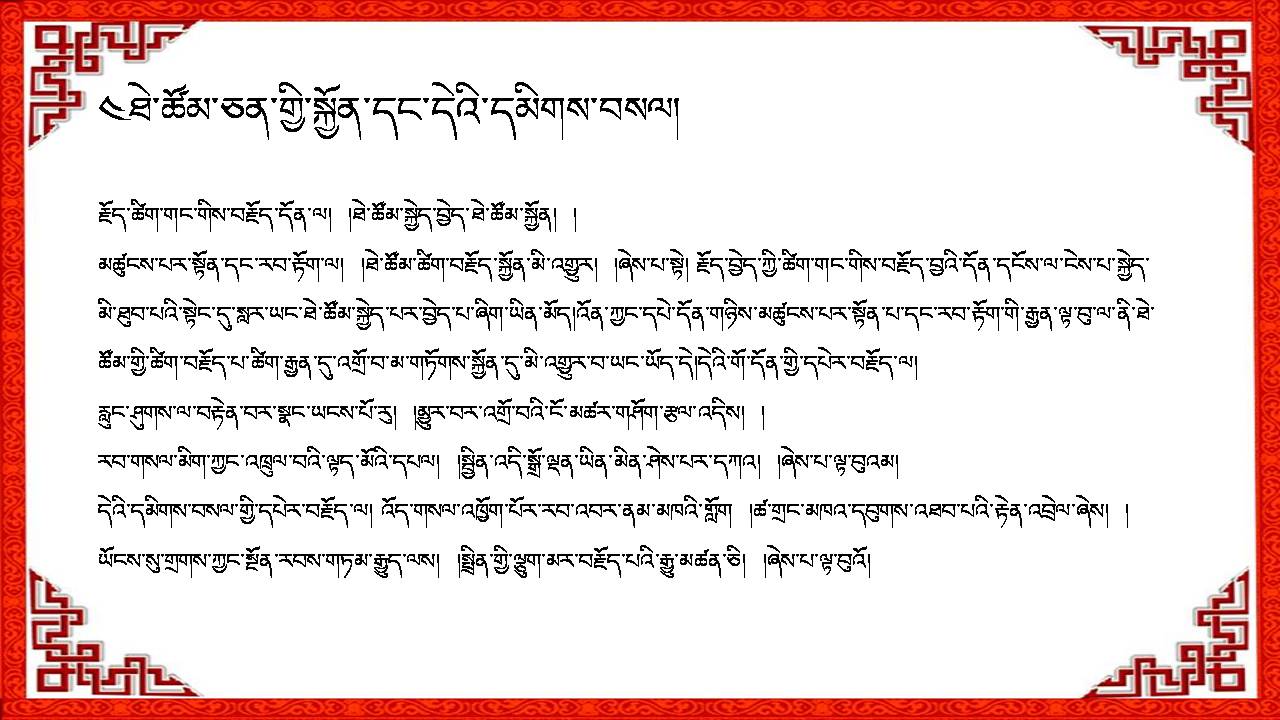 ༤ཐེ་ཚོམ་ཅན་གྱི་སྐྱོན་དང་དེའི་དམིགས་བསལ།
རྗོད་ཚིག་གང་གིས་བརྗོད་དོན་ལ། །ཐེ་ཚོམ་སྐྱེད་བྱེད་ཐེ་ཚོམ་སྐྱོན། །
མཚུངས་པར་སྟོན་དང་རབ་རྟོག་ལ། །ཐེ་ཚོམ་ཚིག་བརྗོད་སྐྱོན་མི་འགྱུར། །ཞེས་པ་སྟེ། རྗོད་བྱེད་ཀྱི་ཚིག་གང་གིས་བརྗོད་བྱའི་དོན་དངོས་ལ་ངེས་པ་སྐྱེད་
མི་ཐུབ་པའི་སྟེང་དུ་སླར་ཡང་ཐེ་ཚོམ་སྐྱེད་པར་བྱེད་པ་ཞིག་ཡིན་མོད།འོན་ཀྱང་དཔེ་དོན་གཉིས་མཚུངས་པར་སྟོན་པ་དང་རབ་རྟོག་གི་རྒྱན་ལྟ་བུ་ལ་ནི་ཐེ་
ཚོམ་གྱི་ཚིག་བརྗོད་པ་ཚིག་རྒྱན་དུ་འགྲོ་བ་མ་གཏོགས་སྐྱོན་དུ་མི་འགྱུར་བ་ཡང་ཡོད་དེ།དེའི་གོ་དོན་གྱི་དཔེར་བརྗོད་ལ།
རླུང་ཤུགས་ལ་བརྟེན་བར་སྣང་ཡངས་པོ་རུ། །མྱུར་བར་འགྲོ་བའི་ངོ་མཚར་གཤོག་རྩལ་འདིས། །
རབ་གསལ་མིག་ཀྱང་འཁྲུལ་བའི་ལྟད་མོའི་དཔལ། །སྤྲིན་འདི་སྒྲོ་ལྡན་ཡིན་མིན་ཤེས་པར་དཀའ། །ཞེས་པ་ལྟ་བུའམ།
དེའི་དམིགས་བསལ་གྱི་དཔེར་བརྗོད་ལ། འོད་གསལ་འཁྱོག་པོར་རབ་འབར་ནམ་མཁའི་གློག །ཚ་གྲང་མཁའ་དབུགས་འཐབ་པའི་རྟེན་འབྲེལ་ཞེས། །
ཡོངས་སུ་གྲགས་ཀྱང་སྔོན་རབས་གཏམ་རྒྱུད་ལས། །སྤྲིན་གྱི་ལྕུག་མར་བརྗོད་པའི་རྒྱུ་མཚན་ཅི། །ཞེས་པ་ལྟ་བུའོ།